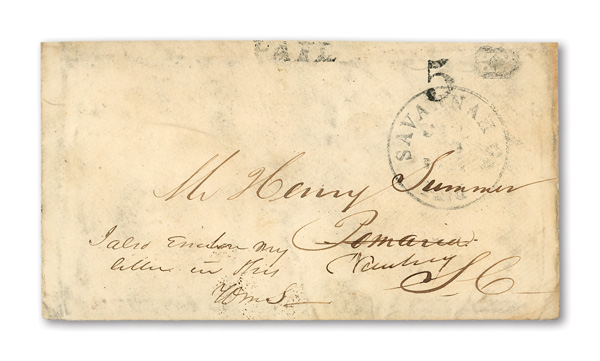 PAID
5
SAVANNAH Ga.
PAID
Mr Henry Summer
Pomaria
Newberry
S.C.
I also Enclose my
letter in this